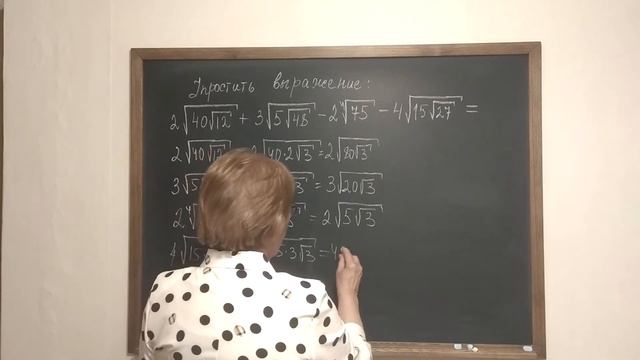 Упростить выражение:
2√(40√12) + 3√(5√48) − 2⁴√75 − 4√(15√27) =
2√(40√12) = 2√(40·2√3) = 2√(80√3)
3√(5 √3) = 3√(20√3)
2⁴√ = 2√(5√3)
4√(15 ·3√3) = 4